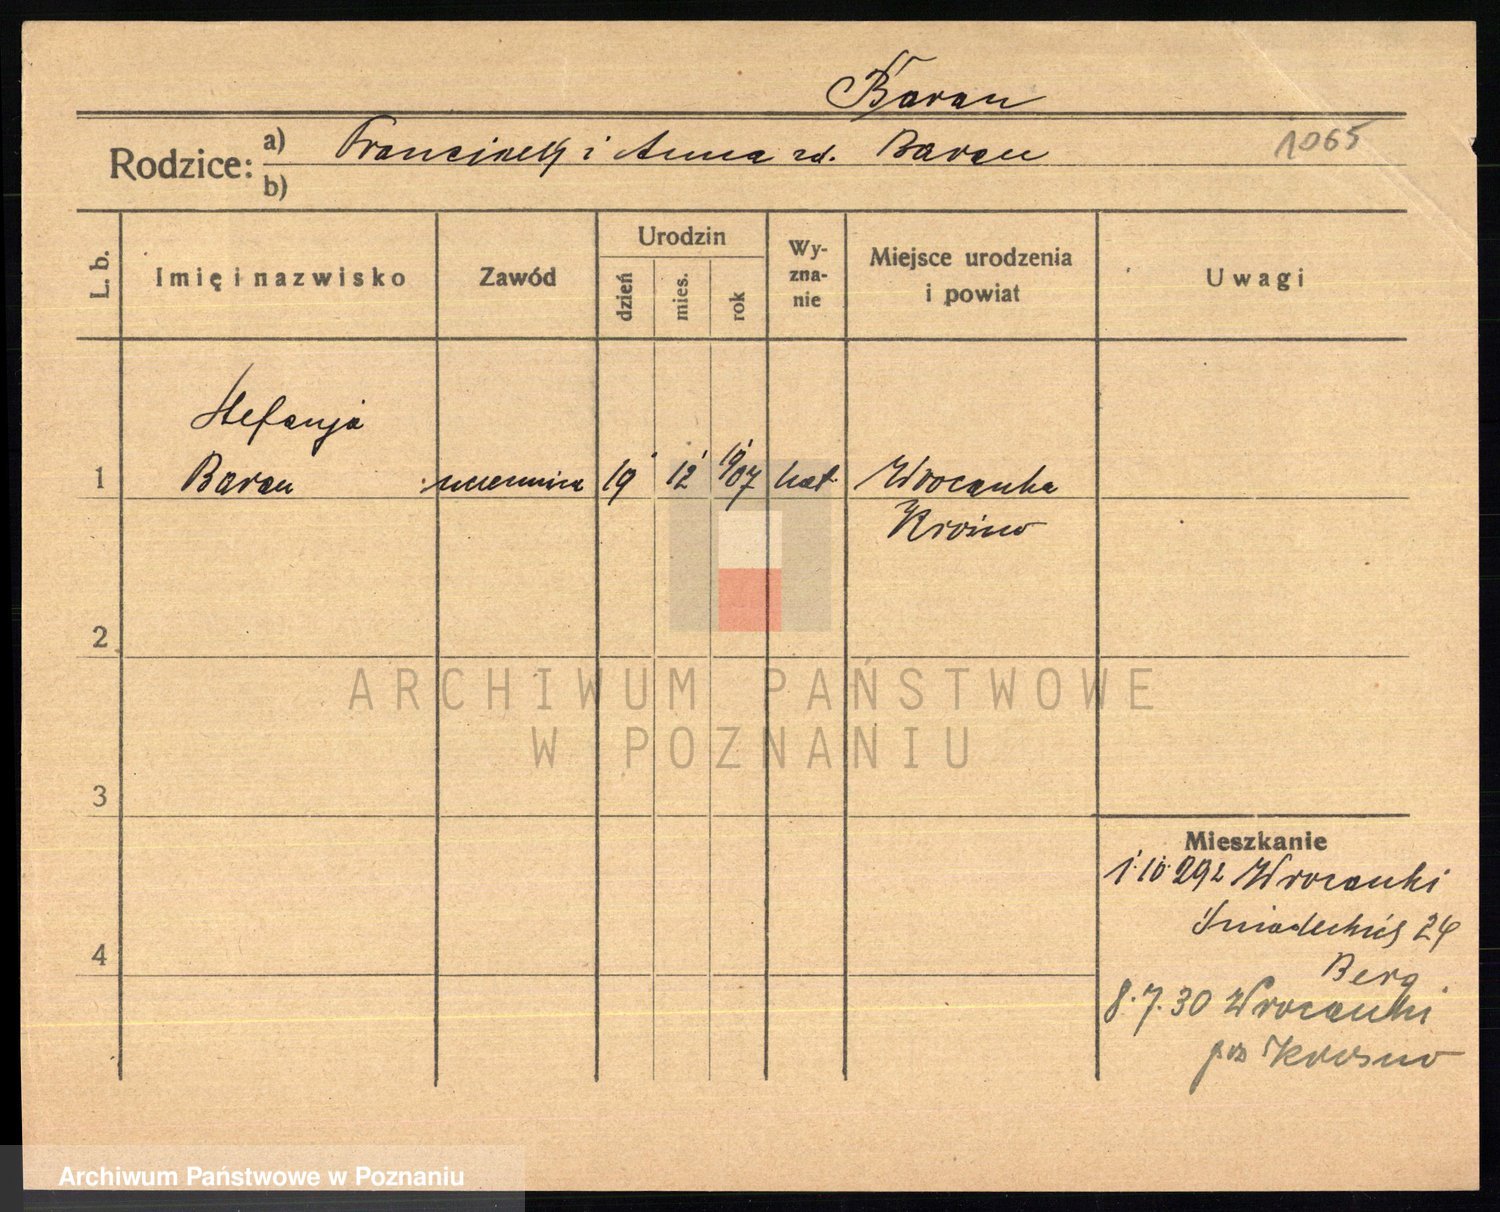 Baran
Rodzice:
a) Franciszek i Anna zd. Baran
1065
b)
L. b.
Imię i nazwisko
Zawód
Urodzin
dzień
mies.
rok
Wy-
zna-
nie
Miejsce urodzenia
i powiat
Uwagi
Stefanja
1 Baran uczennica 19 12 1907 kat. Wrocanka
Krosno
2
3
4
Mieszkanie
1.10.29 z Wrocanki
Śniadeckich 24
Berg
8.7.30 Wrocanki
pow Krosno
ARCHIWUM PAŃSTWOWE
W POZNANIU
Archiwum Państwowe w Poznaniu